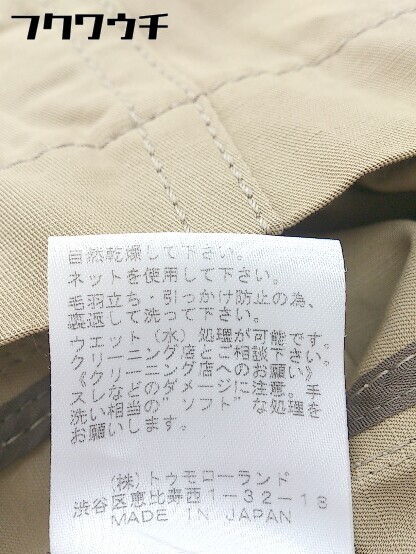 フクワウチ
自然乾燥して下さい。
ネットを使用して下さい。
毛羽立ち・引っかけ防止の為、
裏返して洗って下さい。
ウエット（水）処理が可能です。
クリーニング店とご相談下さい。
《クリーニング店へのお願い》
スレなどのダメージに注意。手
洗い相当の"ソフト"な処理を
お願いします。
（株）トゥモローランド
渋谷区恵比寿西1-32-18
MADE IN JAPAN